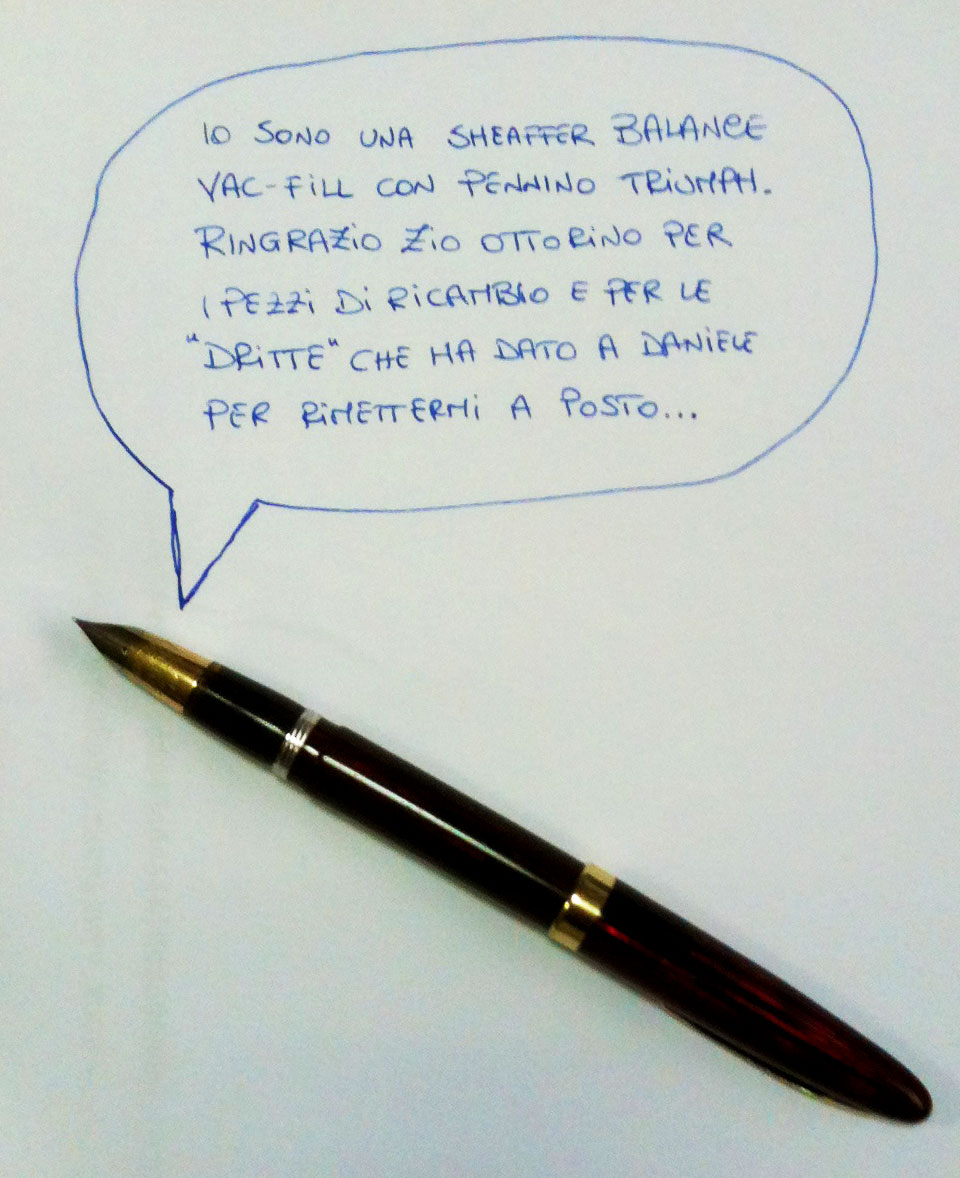 IO SONO UNA SHEAFFER BALANCE
VAC-FiLL CON PENNINO TRiUMPH.
RINGRAZiO ZiO OTTORiNO PER
I PEZZi Di RiCAMBiO E PER LE
"DRiTTE" CHE HA DATO A DANiELE
PER RiMETTERMi A POSTO...